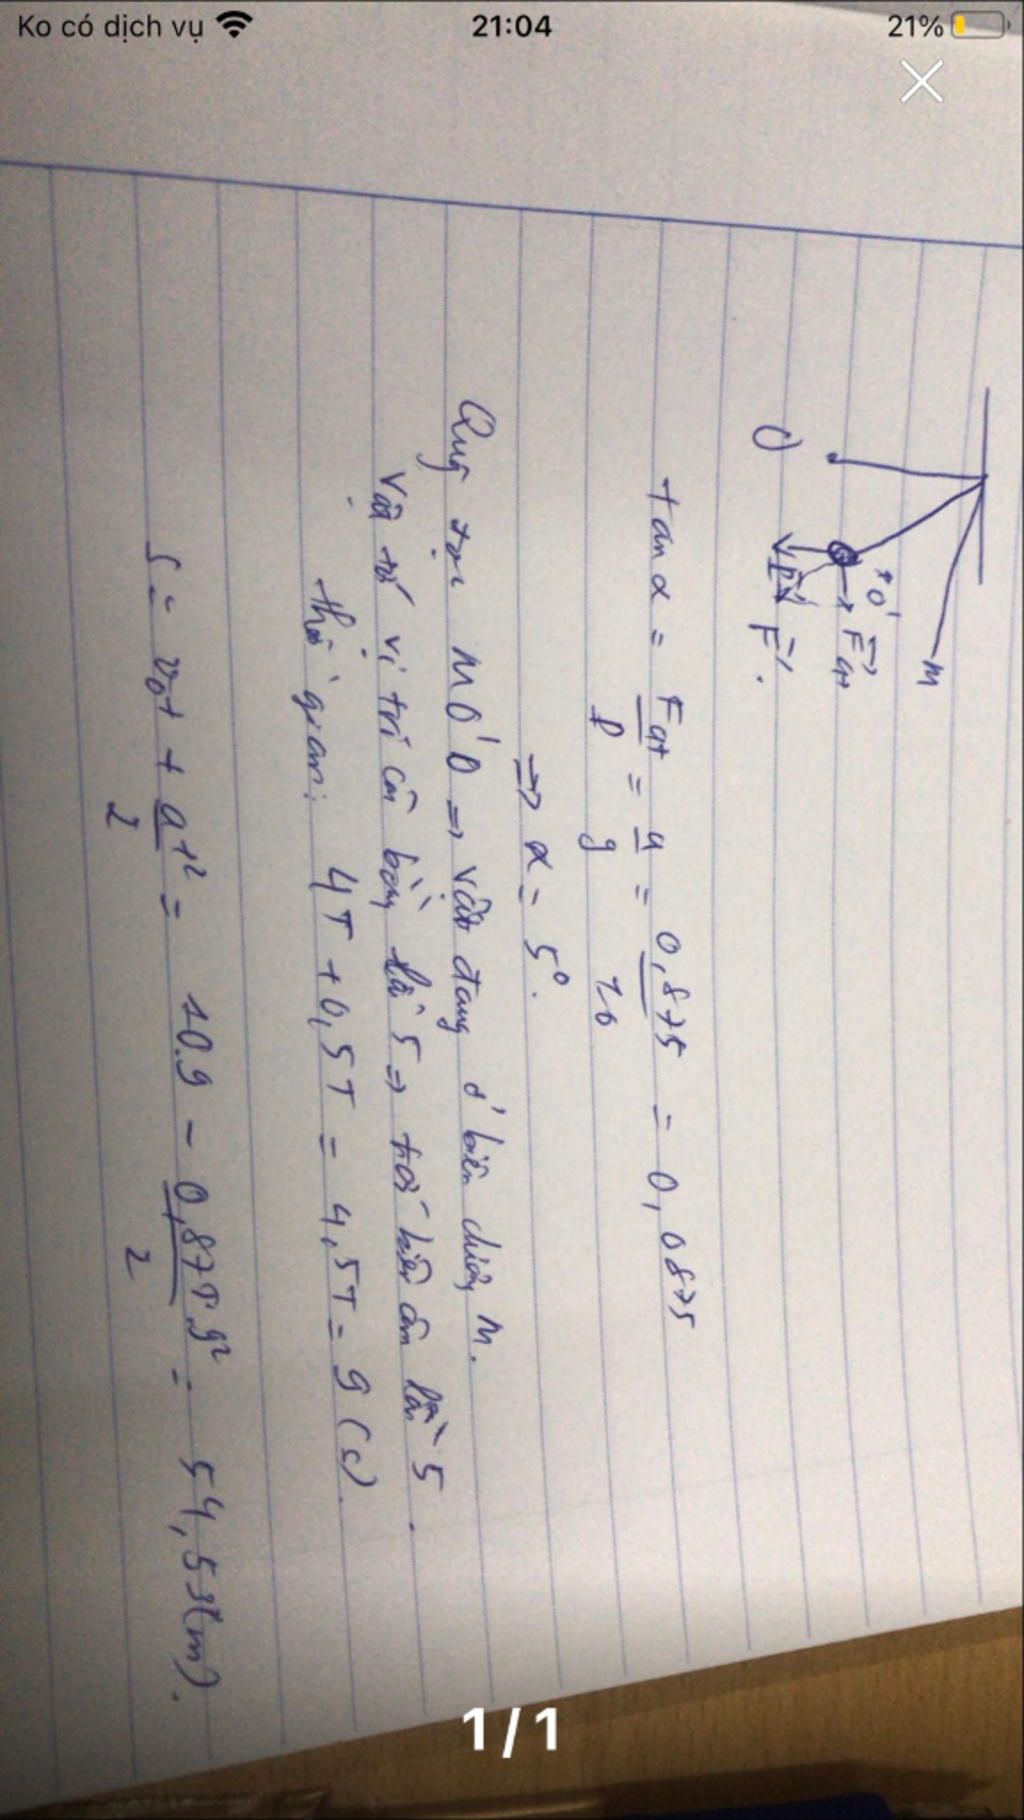 Ko có dịch vụ 21:04 21%
M
O'
O
F⃗qt
P⃗
F⃗'
tan α = Fqt/P = a/g = 0,875/10 = 0,0875
⇒ α = 5°.
Quỹ tại M O' O ⇒ vật đang ở biên dương M.
Vật tới vị trí cân bằng lần 5 ⇒ tới biên âm lần 5.
thời gian: 4T + 0,5T = 4,5T = 9 (s).
S = v₀t + at²/2 = 10.9 - 0,875.9²/2 = 54,5 (m).
1/1